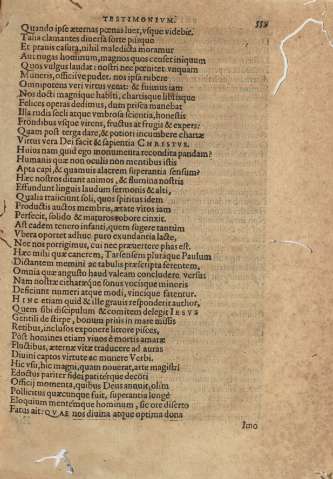 TESTIMONIVM.
Quando ipse æternas pœnas luet, vsque videbit.
Talia clamantes diuersa forte piisque
Et prauis casura, nihil maledicta moramur
Aut nugas hominum, magnos quos censet iniquum
Quos vulgus laudat: nostri nec pœnitet vnquam
Muneris, officiíve pudet. nos ipsa rubere
Omnipotens veri virtus vetat: & fuimus iam
Nos docti magnique habiti, charisque libisque
Felices operas dedimus, dum prisca manebat
Illa rudis secli atque vmbrosa scientia, honestis
Frondibus vsque virens, fructus at frugis & expers:
Quam post terga dare, & potiori incumbere chartæ
Virtus vera Dei facit & sapientia CHRISTVS.
Huius nam quid ego monumenta recondita pandam?
Humanis quæ non oculis non mentibus istis
Apta capi, & quamuis alacrem superantia sensum?
Hæc nostros ditant animos, & flumina nostris
Effundunt linguis laudum sermonis & alti,
Qualia traiiciunt soli, quos spiritus idem
Productis auctos membris, ætate viros iam
Perfecit, solido & maturos robore cinxit.
Ast eadem tenero infanti, quem sugere tantum
Vbera oportet adhuc puro exundantia lacte,
Nec nos porrigimus, cui nec præuertere phas est.
Hæc mihi quæ canerem, Tarsensem pluraque Paulum
Dictantem memini ac tabulis præscripta ferentem,
Omnia quæ angusto haud valeam concludere versus
Nam nostræ citharæque sonus vocisque minoris
Deficiunt numeri atque modi, vincique fatentur.
HINC etiam quid & ille grauis responderit author,
Quem sibi discipulum & comitem delegit IESVS
Gentili de stirpe, bonum prius in mare missis
Retibus, inclusos exponere littore pisces,
Post homines etiam viuos è mortis amaræ
Fluctibus, æternæ vitæ traducere ad auras
Diuini captos virtute ac munere Verbi.
Hic vsu, hic magni, quam nouerat, arte magistri
Edoctus pariter fidei pariterque decori
Officij momenta, quibus Deus annuit, olim
Pollicitus quæcunque fuit, superantia longè
Eloquium mentémque hominum, sic ore diserto
Fatus ait: QVAE nos diuina atque optima dona
Imo